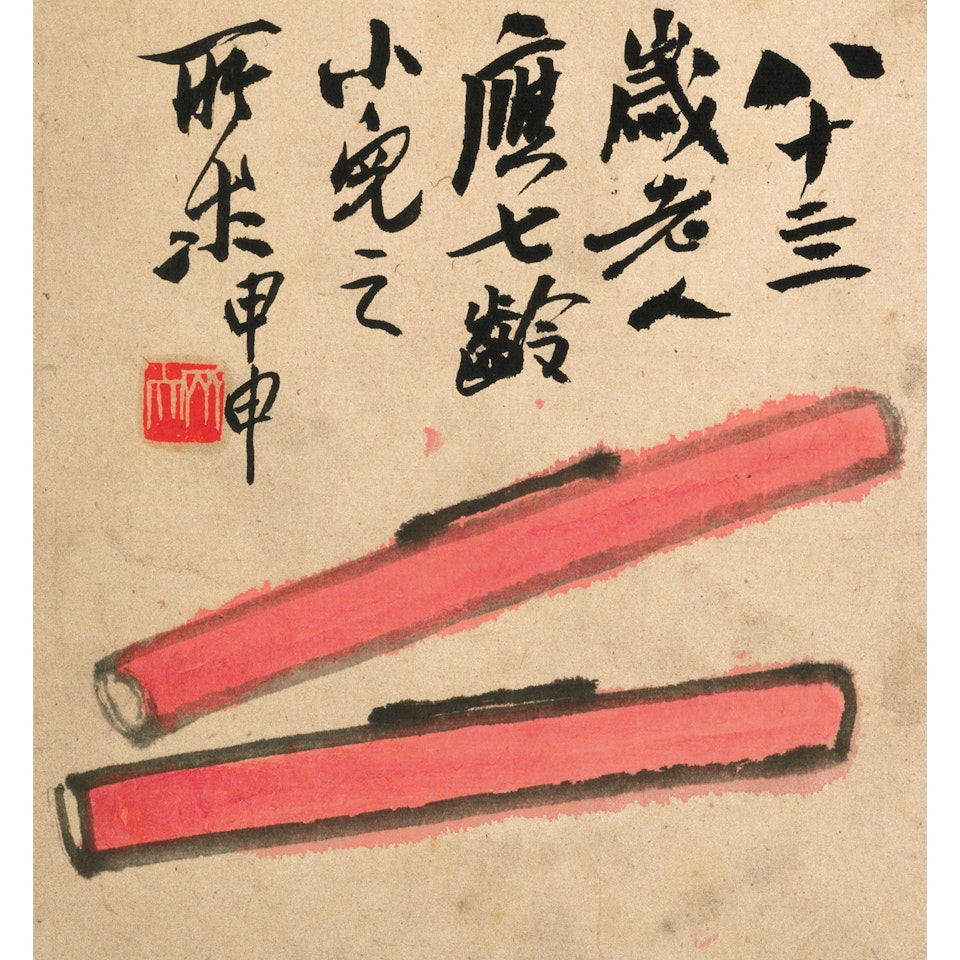 八十亖
歲老人
應七齡
小兒之
所求甲申